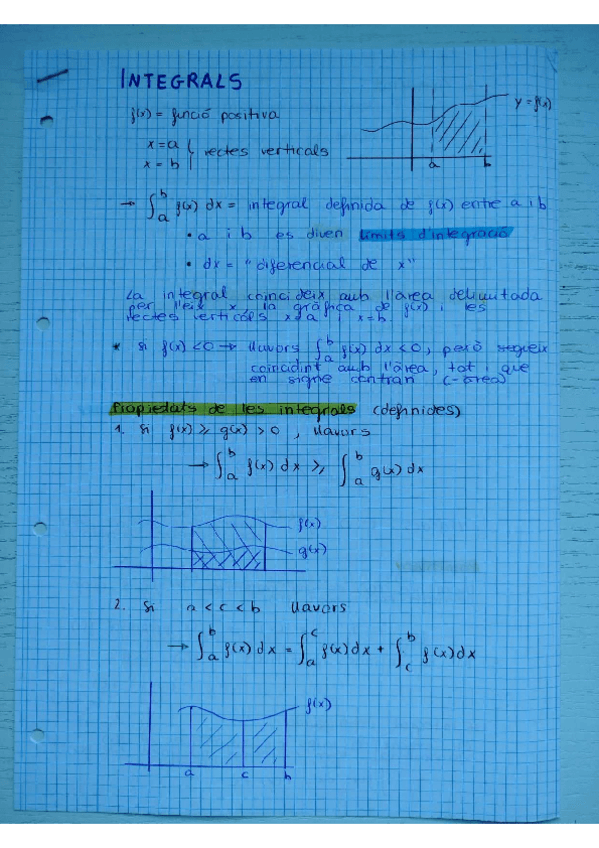 INTEGRALS
f(x) = funció positiva
y = f(x)
x = a
x = b } rectes verticals
a b
→ ∫ₐᵇ f(x) dx = integral definida de f(x) entre a i b
• a i b es diven límits d'integració
• dx = "diferencial de x"
La integral coincideix amb l'àrea delimitada
per l'eix x la gràfica de f(x) i les
rectes verticals x=a i x=b.
* si f(x) < 0 → llavors ∫ₐᵇ f(x) dx < 0, però segueix
coincidint amb l'àrea, tot i que
en signe contrari (-àrea)
Propiedats de les integrals (definides)
1. Si f(x) ≥ g(x) > 0, llavors
→ ∫ₐᵇ f(x) dx ≥ ∫ₐᵇ g(x) dx
f(x)
g(x)
2. Si a < c < b llavors
→ ∫ₐᵇ f(x) dx = ∫ₐᶜ f(x) dx + ∫꜀ᵇ f(x) dx
f(x)
a c b